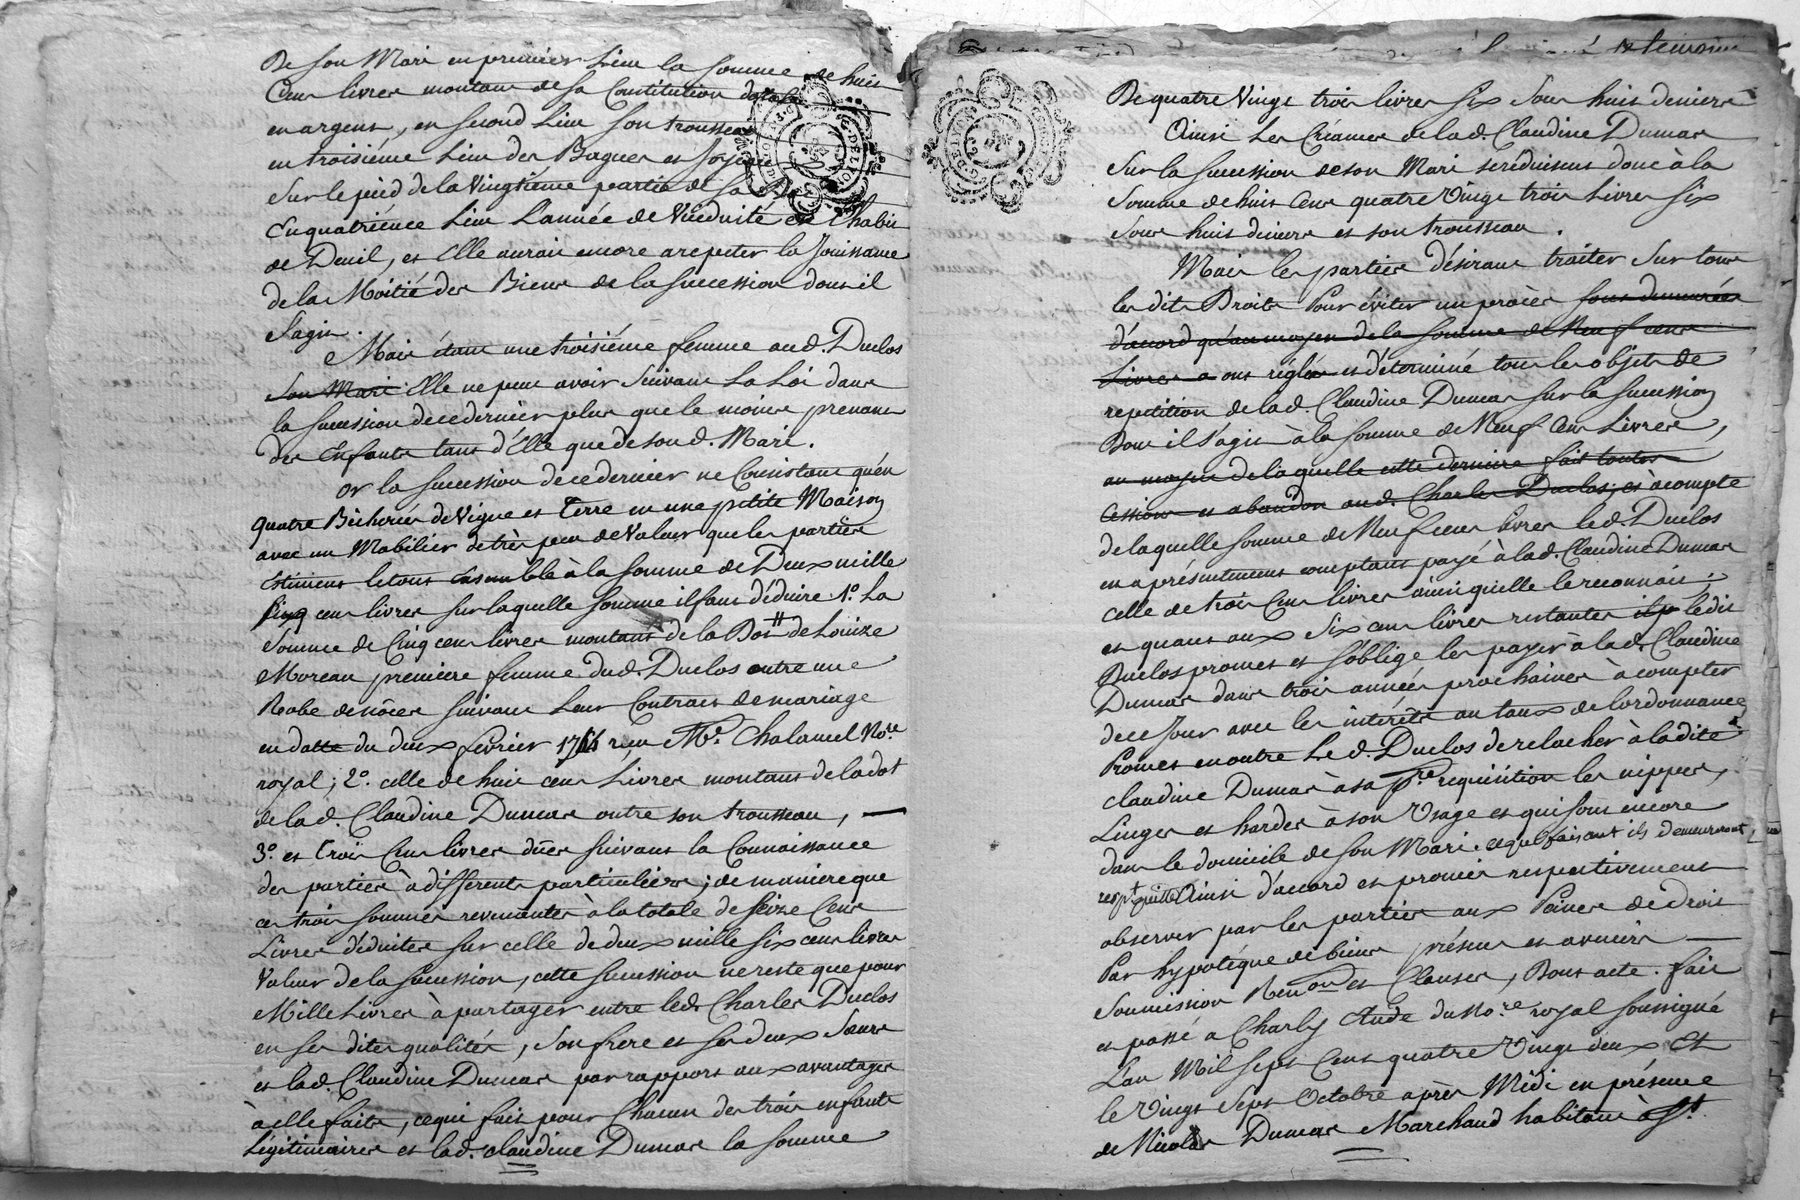 De son Mari en premier Lieu la somme de huit
Cens livres montant de sa Constitution dotale
en argent, en second Lieu son trousseau
en troisiéme Lieu des Bagues et Joyaux
Sur le pied de la Vingtieme partie de sa
En quatriéme Lieu L'année de Viduité et l'habit
de Deuil, et Elle auroit encore a repeter la Jouissance
de la Moitié des Biens de la succession dont il
s'agit.
Mais étant une troisiéme femme aud. Duclos
son Mari Elle ne peut avoir suivant La Loi dans
la succession de ce dernier plus que le moins prenant
des Enfants tant d'Elle que de sond. Mari.
Or la succession de ce dernier ne Consistant qu'en
quatre Bicherées de Vigne et Terre en une petite Maison
avec un Mobilier de très peu de Valeur que les parties
estiment le tout ensemble à la somme de Deux mille
six cens livres sur laquelle somme il faut déduire 1°. La
somme de Cinq cens livres montant de la Dot de Louize
Moreau premiere femme dud. Duclos outre une
Robe de nôces suivant Leur Contract de mariage
en datte du deux fevrier reçu Me. Chalamel Nore.
royal; 2°. celle de huit cens Livres montant de la dot
de lad. Claudine Dumas outre son trousseau,
3°. et Trois Cens livres dües suivant la Connoissance
des parties à differents particuliers; de maniere que
ces trois sommes revenantes à la totale de Seize Cens
Livres déduites sur celle de deux mille six cens livres
Valeur de la succession, cette succession ne reste que pour
Mille Livres à partager entre led. Charles Duclos
en ses dites qualités, son frere et ses deux Soeurs
et lad. Claudine Dumas par rapport aux avantages
à elle faits, ce qui fait pour Chacun des trois enfants
Légitimaires et lad. Claudine Dumas la somme
De quatre Vingt trois livres six Sous huit deniers
Ainsi Les Créances de lad. Claudine Dumas
sur la succession de son Mari se réduisent donc à la
Somme de huit Cens quatre Vingt trois Livres six
Sous huit deniers et son trousseau.
Mais les parties désirant traiter sur tous
les dits Droits Pour éviter un procès sont demeurées
d'accord qu'au moyen de la somme de Neuf cens
Livres ont réglé et déterminé tous les objets de
repetition de lad. Claudine Dumas sur la succession
Dont il s'agit à la somme de Neuf Cens Livres,
au moyen de laquelle cette derniere fait toutes
Cessions et abandon aud. Charles Duclos; et à compte
de laquelle somme de Neuf cens livres led. Duclos
en a présentement comptant payé à lad. Claudine Dumas
celle de trois Cens livres ainsi quelle le reconnoit.
et quant aux six cens livres restantes ledit
Duclos promet et s'oblige les payer à lad. Claudine
Dumas dans trois années prochaines à compter
de ce Jour avec les intérêts au taux de l'ordonnance
Promet en outre Led. Duclos de relacher à la dite
Claudine Dumas à sa pre. requisition les nippes,
Linges et hardes à son Usage et qui sont encore
dans le domicile de son Mari. ce que faisant ils demeureront
respt. quittes Ainsi d'accord et promis respectivement
observer par les parties aux Peines de Droit
Par hypotéque de biens présens et avenirs
Soumission Renon. et Clauses, Dont acte. fait
et passé a Charly Etude du Nore. royal soussigné
L'an Mil sept Cens quatre Vingt deux Et
le Vingt Sept Octobre après Midi en présence
de Nicolas Dumas Marchand habitant à St.